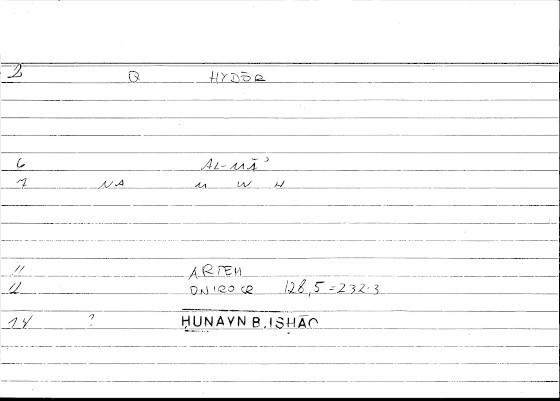 2 Q HYDŌR
6 AL-MĀʾ
7 NA M W H
11 ARTEM
12 ONIROCR 128,5=232.3
14 ? ḤUNAYN B. ISḤĀQ